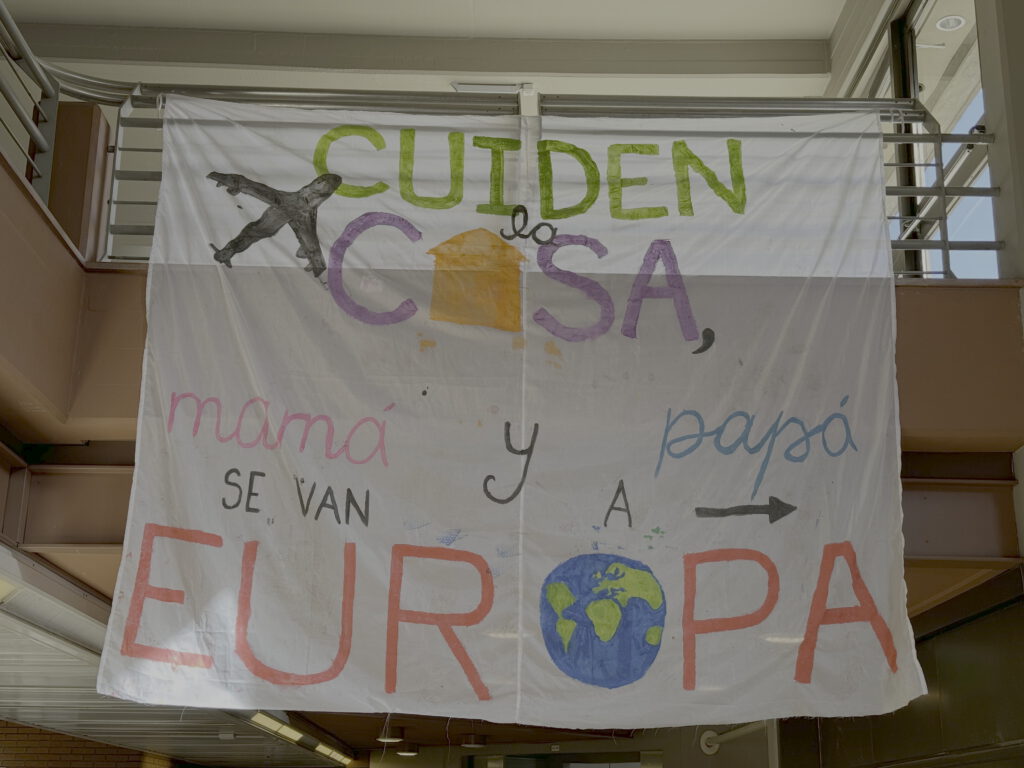 CUIDEN
la
CASA,
mamá y papá
SE VAN A
EUROPA